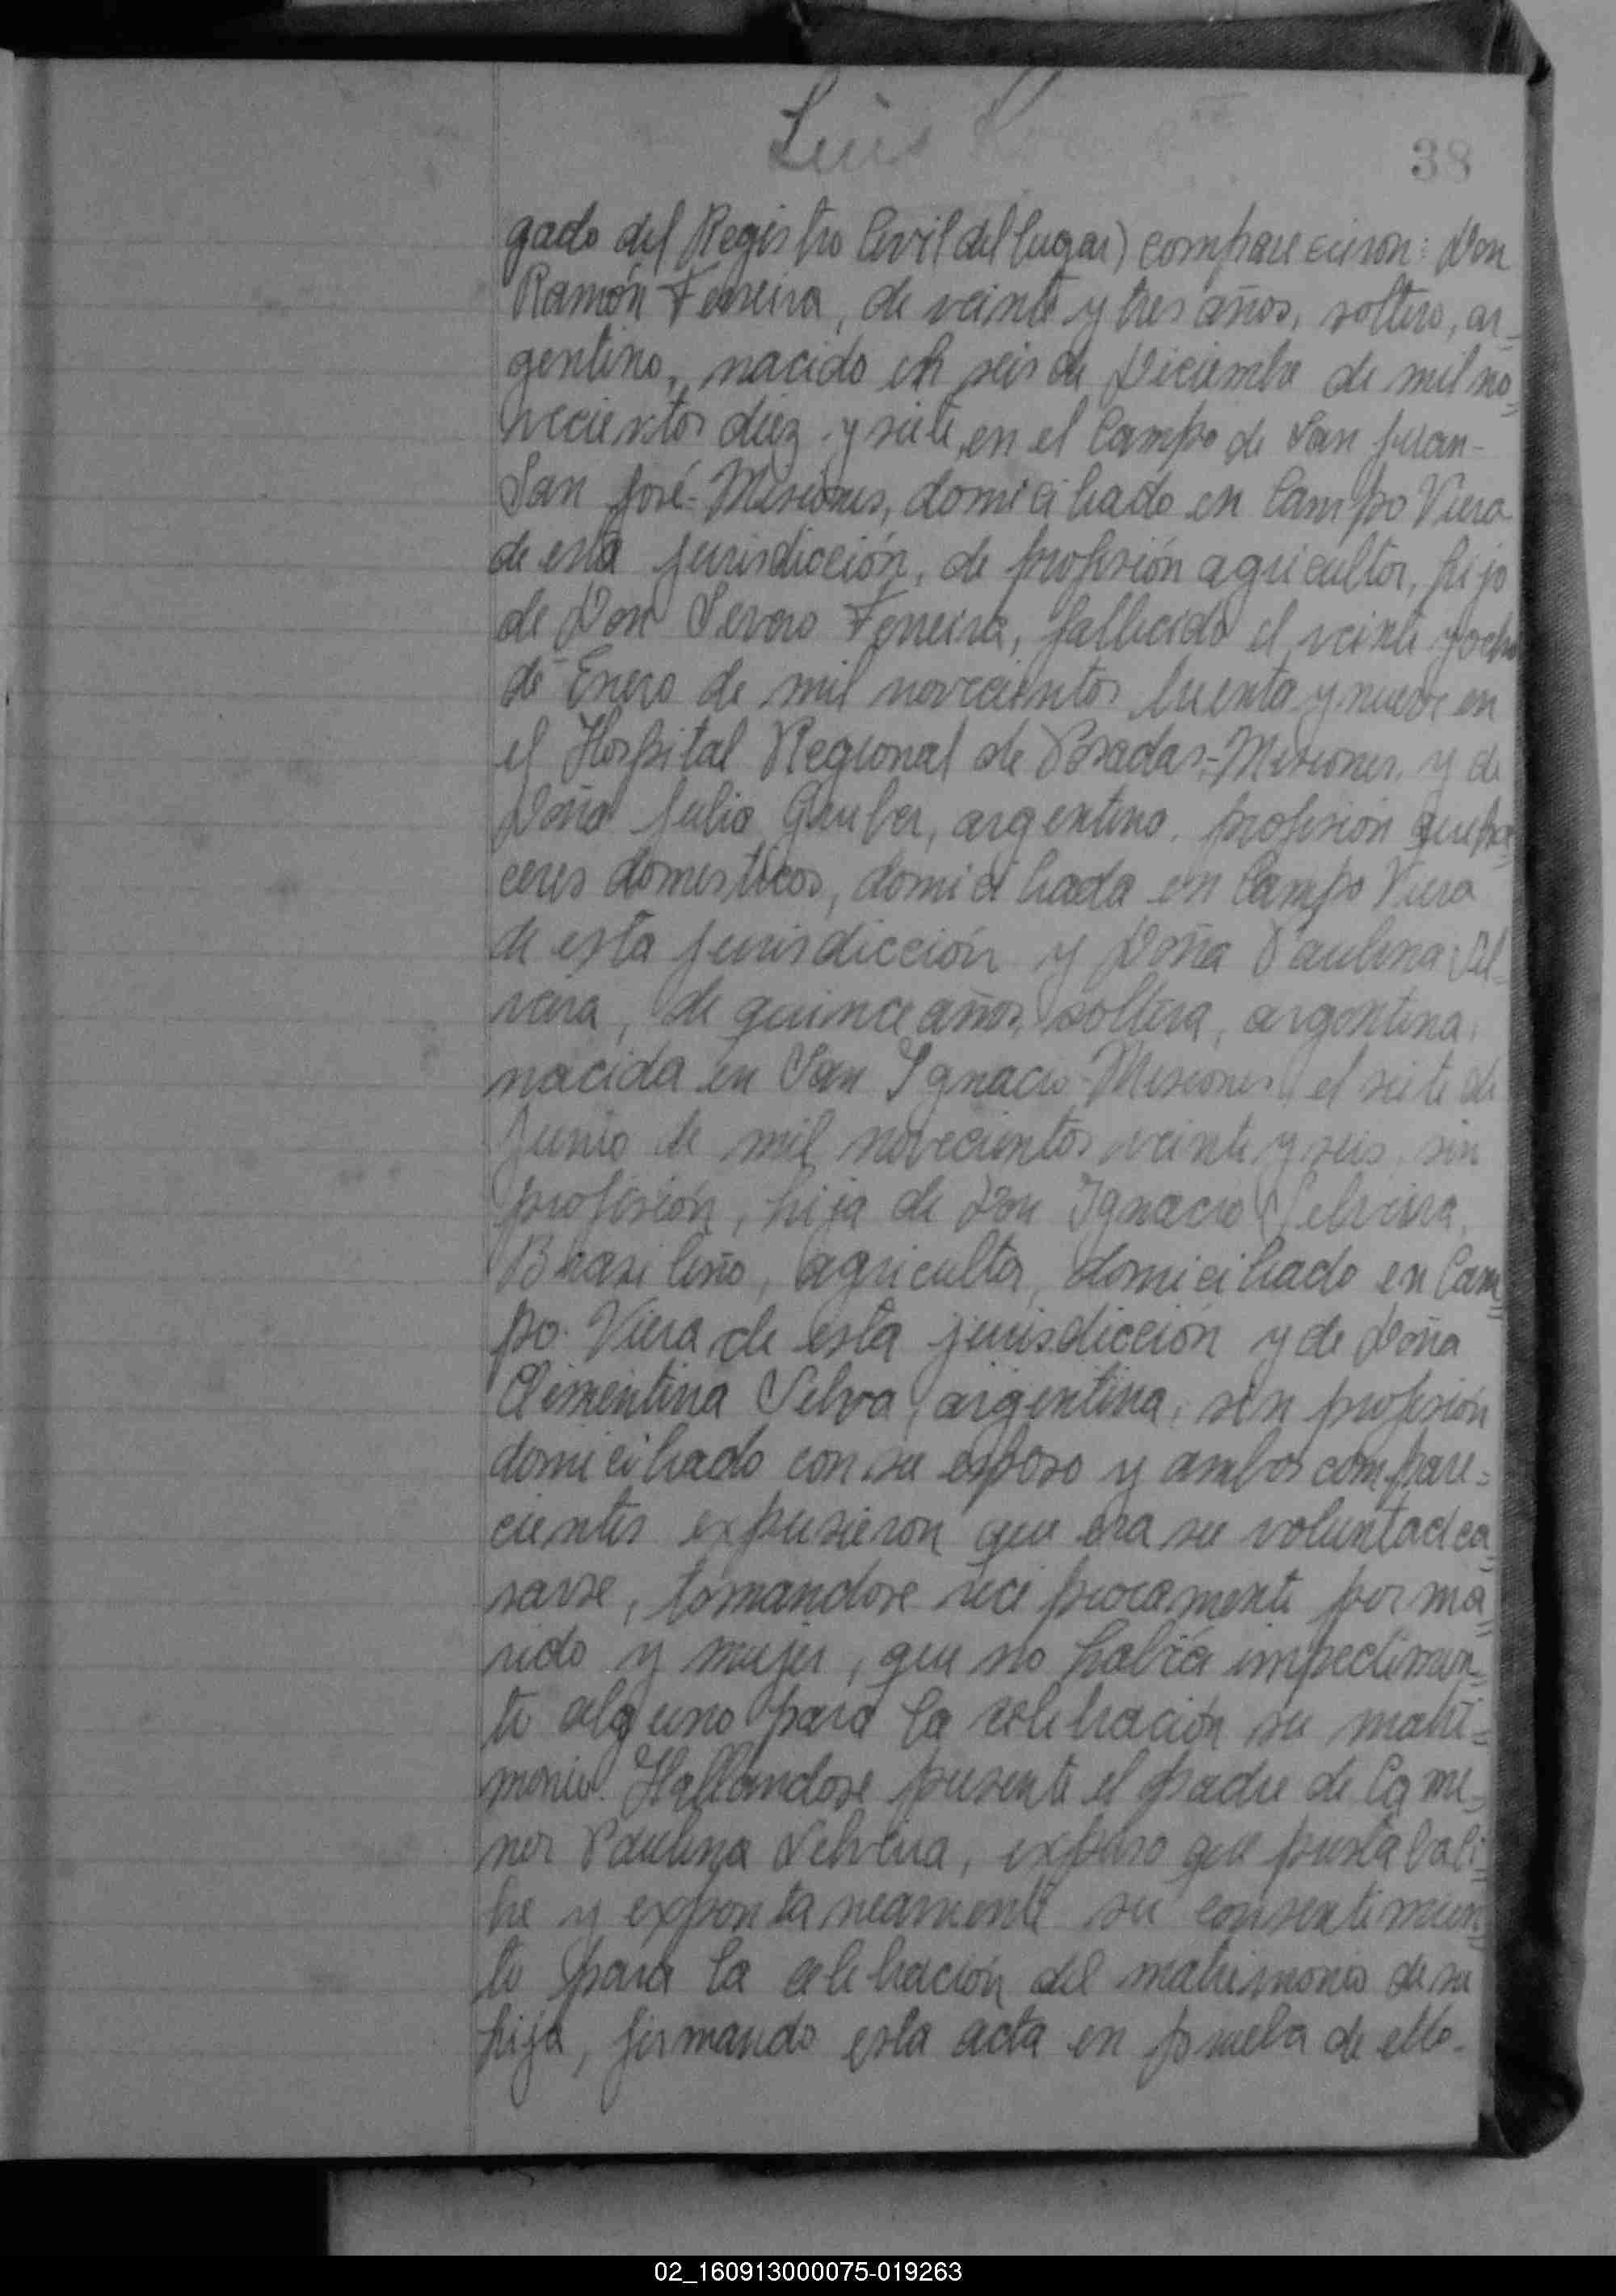 Luis
38
gado del Registro Civil del lugar) comparecieron: Don
Ramón Ferreira, de veinte y tres años, soltero, ar=
gentino, nacido el seis de Diciembre de mil no=
vecientos diez y siete, en el Campo de San Juan-
San José-Misiones, domiciliado en Campo Viera
de esta jurisdicción, de profesión agricultor, hijo
de Don Severo Ferreira, fallecido el veinte y ocho
de Enero de mil novecientos treinta y nueve en
el Hospital Regional de Posadas-Misiones, y de
Doña Julia Gruber, argentino, profesión queha=
ceres domesticos, domiciliada en Campo Viera
de esta jurisdicción y Doña Paulina Sil-
veira, de quince años, soltera, argentina,
nacida en San Ignacio-Misiones, el siete de
Junio de mil novecientos veinte y seis, sin
profesión, hija de Don Ignacio Silveira,
Brasileño, agricultor, domiciliado en Cam=
po Viera de esta jurisdicción y de Doña
Clementina Silva, argentina, sin profesión
domiciliado con su esposo y ambos compare=
cientes expusieron que era su voluntad ca=
sarse, tomandose reciprocamente por ma=
rido y mujer, que no había impedimen=
to alguno para la celebración su matri=
monio. Hallandose presente el padre de la me=
nor Paulina Silveira, expuso que prestaba li=
bre y expontaneamente su consentimien=
to para la celebración del matrimonio de su
hija, firmando esta acta en prueba de ello.
02_160913000075-019263